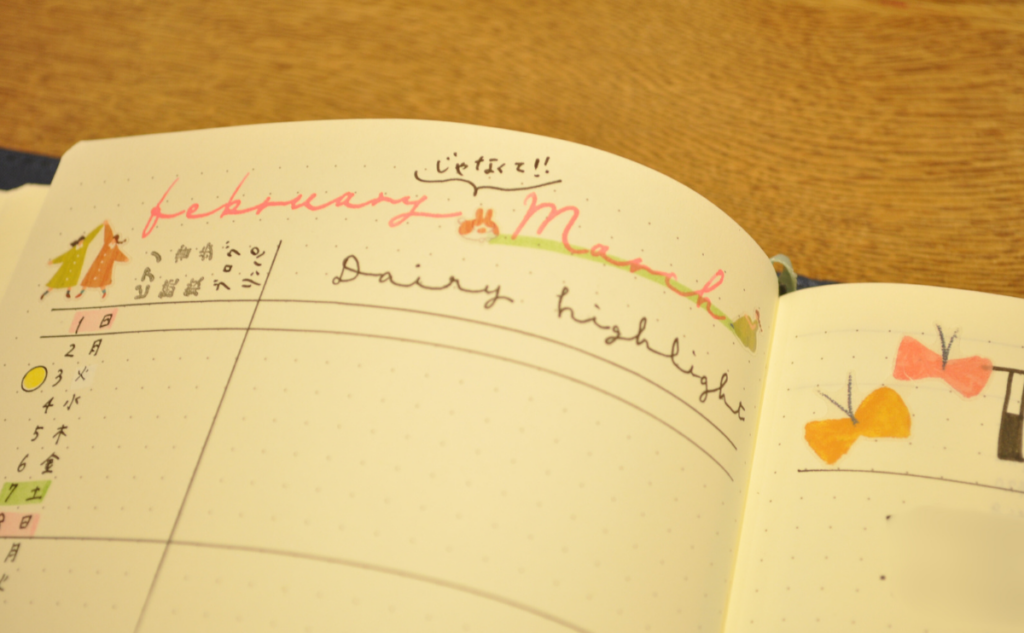 じゃなくて!!
february March
ピアノ
読書
散歩
ブログ
リンパ
Dairy highlight
1 日
2 月
3 火
4 水
5 木
6 金
7 土
日
月
火